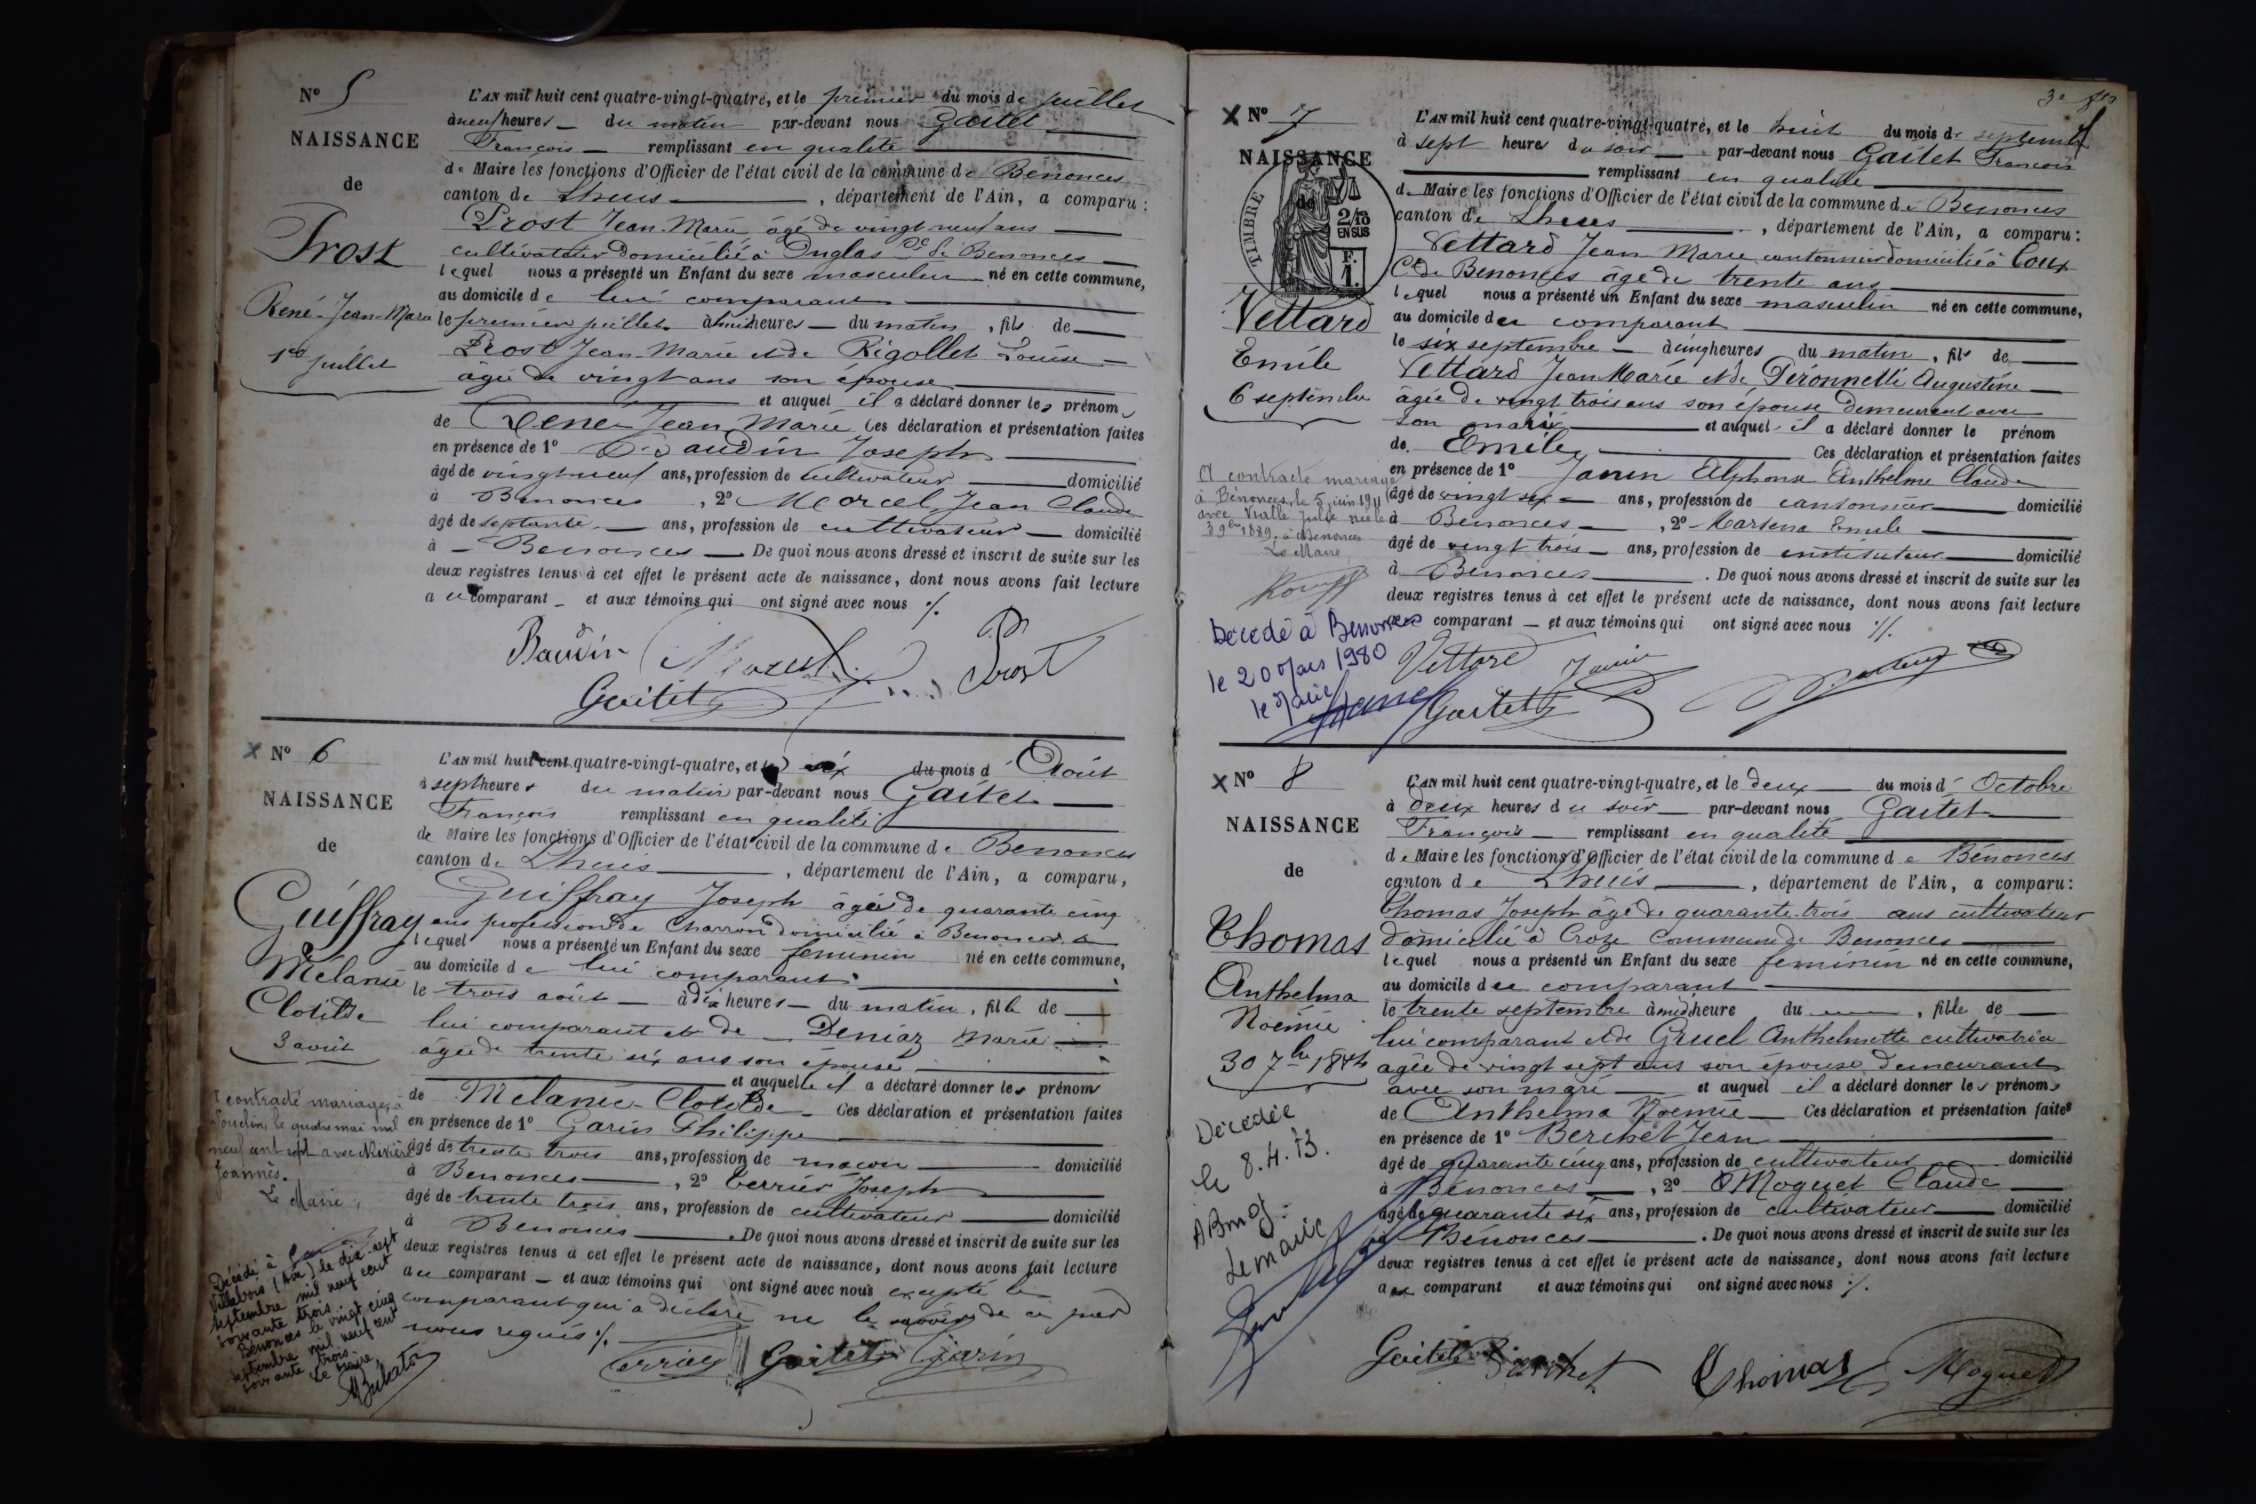 N° 5
NAISSANCE
de
Prost
René-Jean-Marie
1er juillet
L'AN mil huit cent quatre-vingt-quatre, et le premier du mois de juillet
à neuf heures du matin par-devant nous Gaitet
François remplissant en qualité
de Maire les fonctions d'Officier de l'état civil de la commune de Benonces
canton de Lhuis , département de l'Ain, a comparu :
Prost Jean-Marie âgé de vingt neuf ans
cultivateur domicilié à Onglas Cne de Benonces
lequel nous a présenté un Enfant du sexe masculin né en cette commune,
au domicile de lui comparant
le premier juillet à heures du matin , fils de
Prost Jean-Marie et de Rigollet Louise
âgée de vingt ans son épouse
et auquel il a déclaré donner les prénoms
de René Jean Marie Ces déclaration et présentation faites
en présence de 1° Baudin Joseph
âgé de vingt neuf ans, profession de cultivateur domicilié
à Benonces , 2° Marcel Jean Claude
âgé de septante ans, profession de cultivateur domicilié
à Benonces De quoi nous avons dressé et inscrit de suite sur les
deux registres tenus à cet effet le présent acte de naissance, dont nous avons fait lecture
au comparant et aux témoins qui ont signé avec nous ./.
Baudin Marcel Prost
Gaitet
X N° 6
NAISSANCE
de
Guiffray
Mélanie
Clotilde
3 août
contracté mariage à
Souclin, le quatre mai mil
neuf cent sept avec
Joannès.
Le Maire,
Décédé à
Villebois (Ain) le dix-sept
septembre mil neuf cent
soixante trois.
Benonces le vingt cinq
septembre mil neuf cent
soixante trois.
Le Maire,
L'AN mil huit cent quatre-vingt-quatre, et le six du mois d'Août
à sept heures du matin par-devant nous Gaitet
François remplissant en qualité
de Maire les fonctions d'Officier de l'état civil de la commune de Benonces
canton de Lhuis , département de l'Ain, a comparu,
Guiffray Joseph âgé de quarante cinq
ans profession de Charron domicilié à Benonces
lequel nous a présenté un Enfant du sexe feminin né en cette commune,
au domicile de lui comparant
le trois août à dix heures du matin, fille de
lui comparant et de Deniaz Marie
âgée de trente six ans son épouse
et auquelle il a déclaré donner les prénoms
de Melanie-Clotilde Ces déclaration et présentation faites
en présence de 1° Garin Philippe
âgé de trente trois ans, profession de maçon domicilié
à Benonces , 2° Terrier Joseph
âgé de trente trois ans, profession de cultivateur domicilié
à Benonces . De quoi nous avons dressé et inscrit de suite sur les
deux registres tenus à cet effet le présent acte de naissance, dont nous avons fait lecture
au comparant et aux témoins qui ont signé avec nous excepté le
comparant qui a declaré ne le savoir de ce par
nous requis ./.
Terrier Gaitet Garin
X N° 7
NAISSANCE
de
TIMBRE
2/10 EN SUS
F. 1.
Vettard
Emile
6 septembre
A contracté mariage
à Bénonces, le 5 juin 1911
avec Julie née le
3 9bre 1889 à Benonces
Le Maire,
Décédé à Benonces
le 20 Mars 1980
le Maire
L'AN mil huit cent quatre-vingt-quatre, et le huit du mois de septembre
à sept heures du soir par-devant nous Gaitet François
remplissant en qualité
de Maire les fonctions d'Officier de l'état civil de la commune de Benonces
canton de Lhuis , département de l'Ain, a comparu :
Vettard Jean Marie cantonnier domicilié à Coux
Cne de Benonces âgé de trente ans
lequel nous a présenté un Enfant du sexe masculin né en cette commune,
au domicile du comparant
le six septembre à cinq heures du matin , fils de
Vettard Jean Marie et de Péronnelli Augustine
âgée de vingt trois ans son épouse demeurant avec
son mari et auquel il a déclaré donner le prénom
de Emile Ces déclaration et présentation faites
en présence de 1° Janin Alphonse Anthelme Claude
âgé de vingt six ans, profession de cantonnier domicilié
à Benonces , 2° Emile
âgé de vingt trois ans, profession de instituteur domicilié
à Benonces . De quoi nous avons dressé et inscrit de suite sur les
deux registres tenus à cet effet le présent acte de naissance, dont nous avons fait lecture
comparant et aux témoins qui ont signé avec nous ./.
Vettard Janin
Gaitet
X N° 8
NAISSANCE
de
Thomas
Anthelma
Noémie
30 7bre 1884
Décédée
le 8.4.73.
Le maire
L'AN mil huit cent quatre-vingt-quatre, et le deux du mois d'Octobre
à deux heures du soir par-devant nous Gaitet
François remplissant en qualité
de Maire les fonctions d'Officier de l'état civil de la commune de Bénonces
canton de Lhuis , département de l'Ain, a comparu :
Thomas Joseph âgé de quarante-trois ans cultivateur
domicilié à Croze Commune de Benonces
lequel nous a présenté un Enfant du sexe feminin né en cette commune,
au domicile du comparant
le trente septembre à midi heure du , fille de
lui comparant et de Gruel Anthelmette cultivatrice
âgée de vingt sept ans son épouse demeurant
avec son mari et auquel il a déclaré donner les prénoms
de Anthelma Noémie Ces déclaration et présentation faites
en présence de 1° Berchet Jean
âgé de quarante cinq ans, profession de cultivateur domicilié
à Bénonces , 2° Moguet Claude
âgé de quarante six ans, profession de cultivateur domicilié
à Bénonces . De quoi nous avons dressé et inscrit de suite sur les
deux registres tenus à cet effet le présent acte de naissance, dont nous avons fait lecture
au comparant et aux témoins qui ont signé avec nous ./.
Gaitet Berchet Thomas Moguet